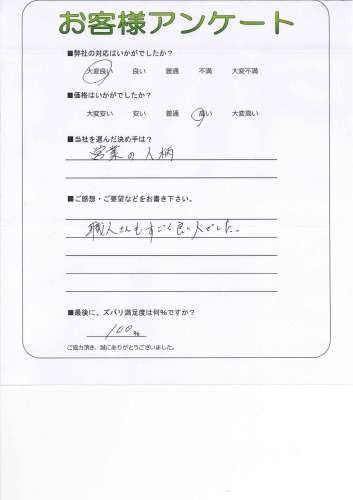 お客様アンケート
■弊社の対応はいかがでしたか？
大変良い 良い 普通 不満 大変不満
■価格はいかがでしたか？
大変安い 安い 普通 高い 大変高い
■当社を選んだ決め手は？
営業の人柄
■ご感想・ご要望などをお書き下さい。
職人さんもすごく良い人でした。
■最後に、ズバリ満足度は何%ですか？
100%
ご協力頂き、誠にありがとうございました。